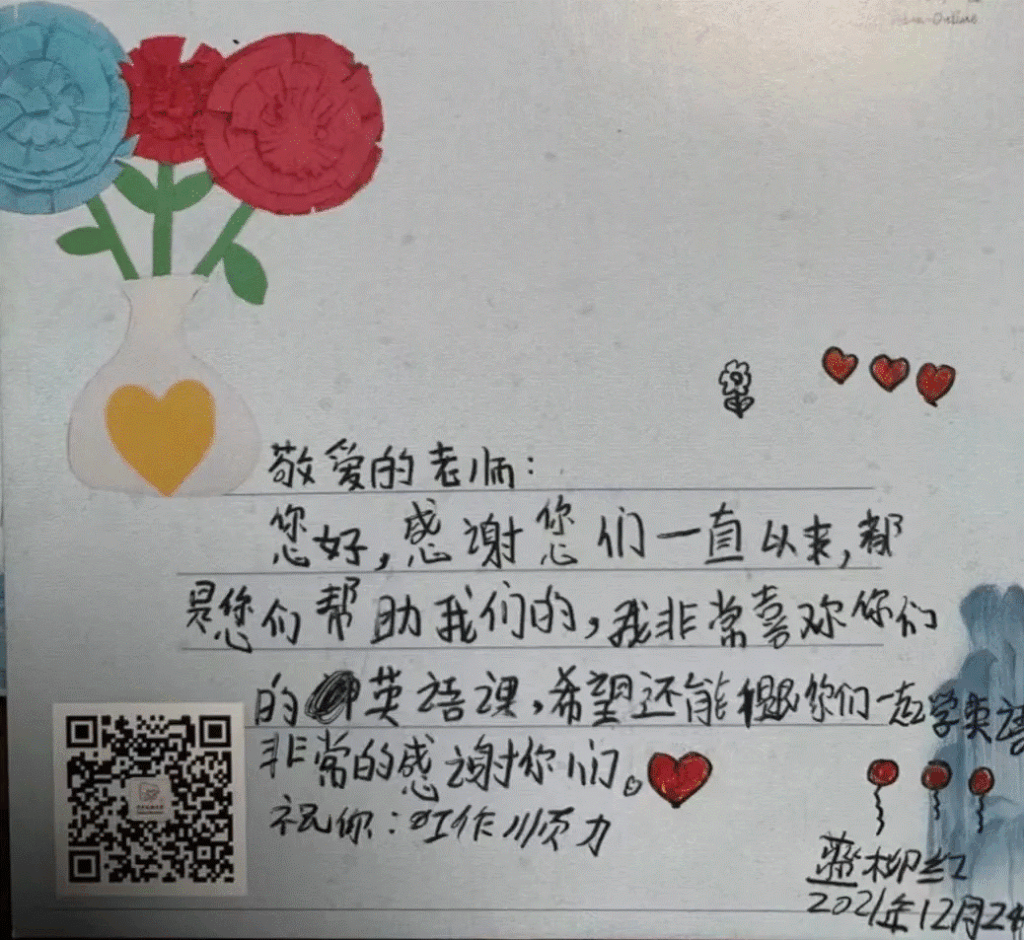 Online
敬爱的老师：
您好，感谢您们一直以来，都
是您们帮助我们的，我非常喜欢你们
的英语课，希望还能跟你们一起学英语
非常的感谢你们。
祝你：工作顺力
蓝柳红
2021年12月24